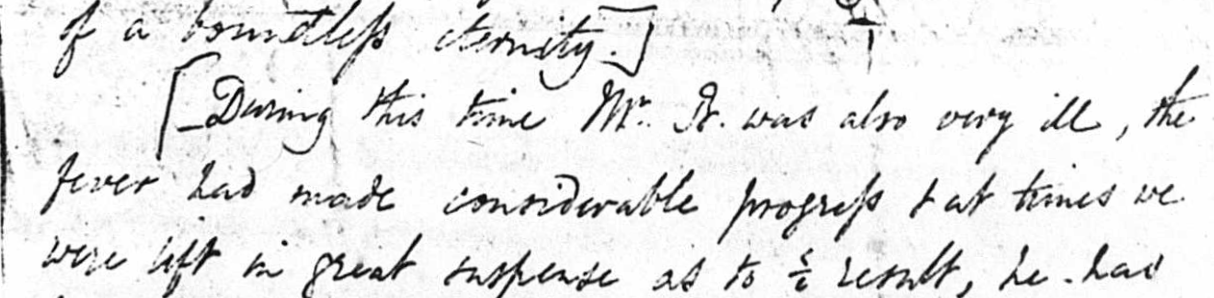 of a boundless eternity.]
[During this time Mr. B. was also very ill, the
fever had made considerable progress & at times we
were left in great suspense as to ye result, he had